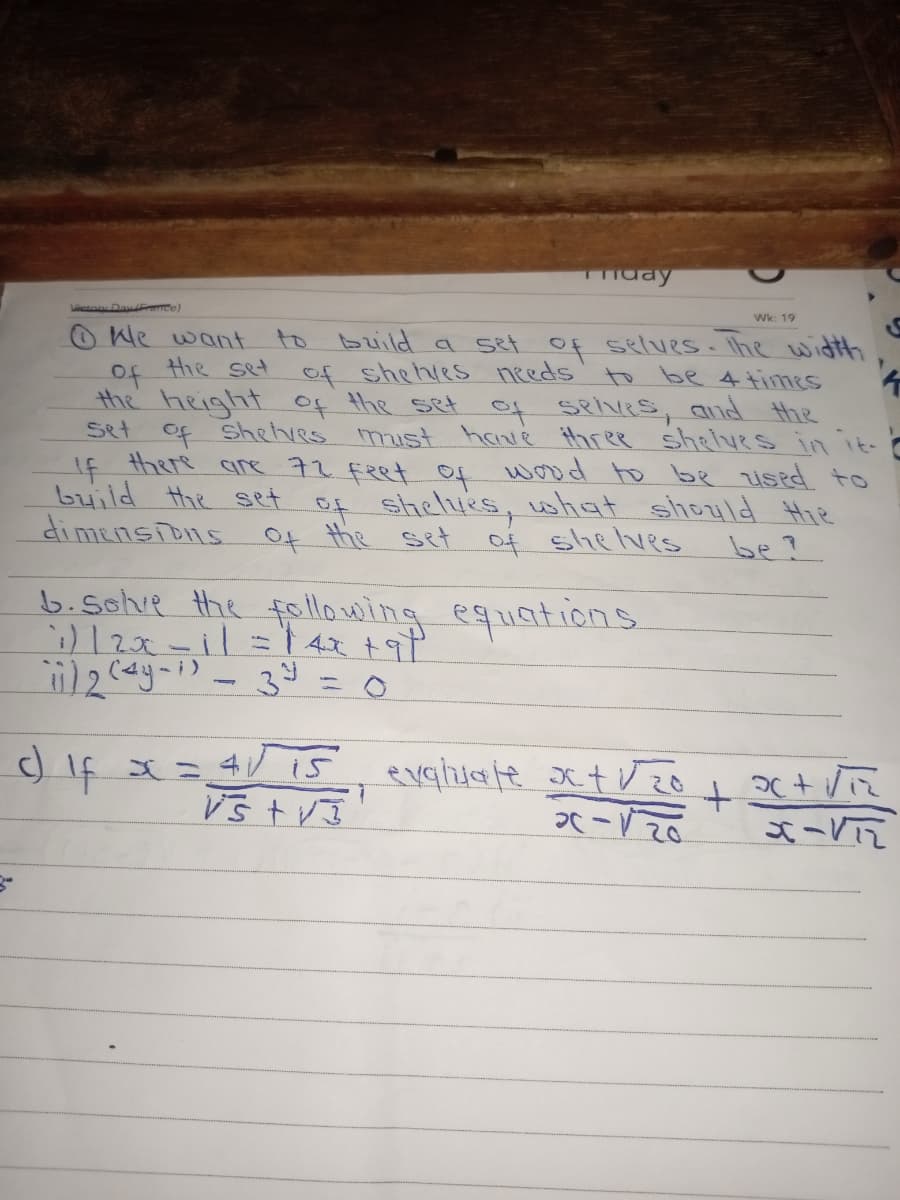 Friday
Victory Day (France)
Wk: 19
① We want to build a set of selves. The width
of the set of shelves needs to be 4 times
the height of the set of selves, and the
set of shelves must have three shelves in it.
If there are 72 feet of wood to be used to
build the set of shelves, what should the
dimensions of the set of shelves be?
b. solve the following equations
i) |2x - 1| = |4x + 9|
ii) 2^(4y-1) - 3^y = 0
c) If x = 4√15 / (√5 + √3), evaluate (x + √20)/(x - √20) + (x + √12)/(x - √12)